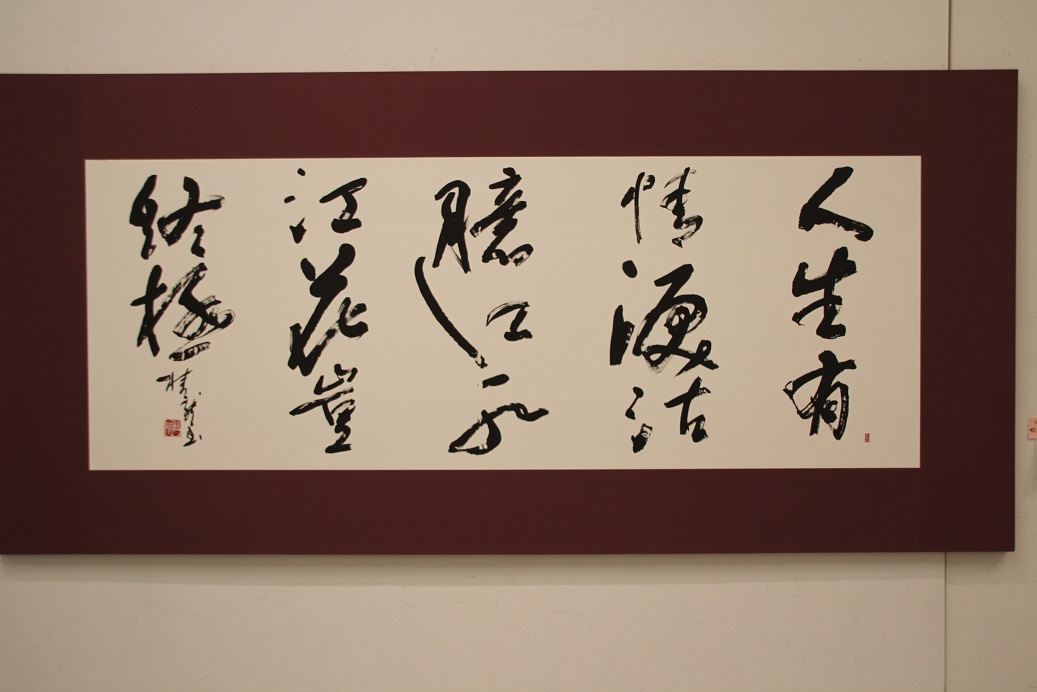 人生有
情淚沾
臆江水
江花豈
終極